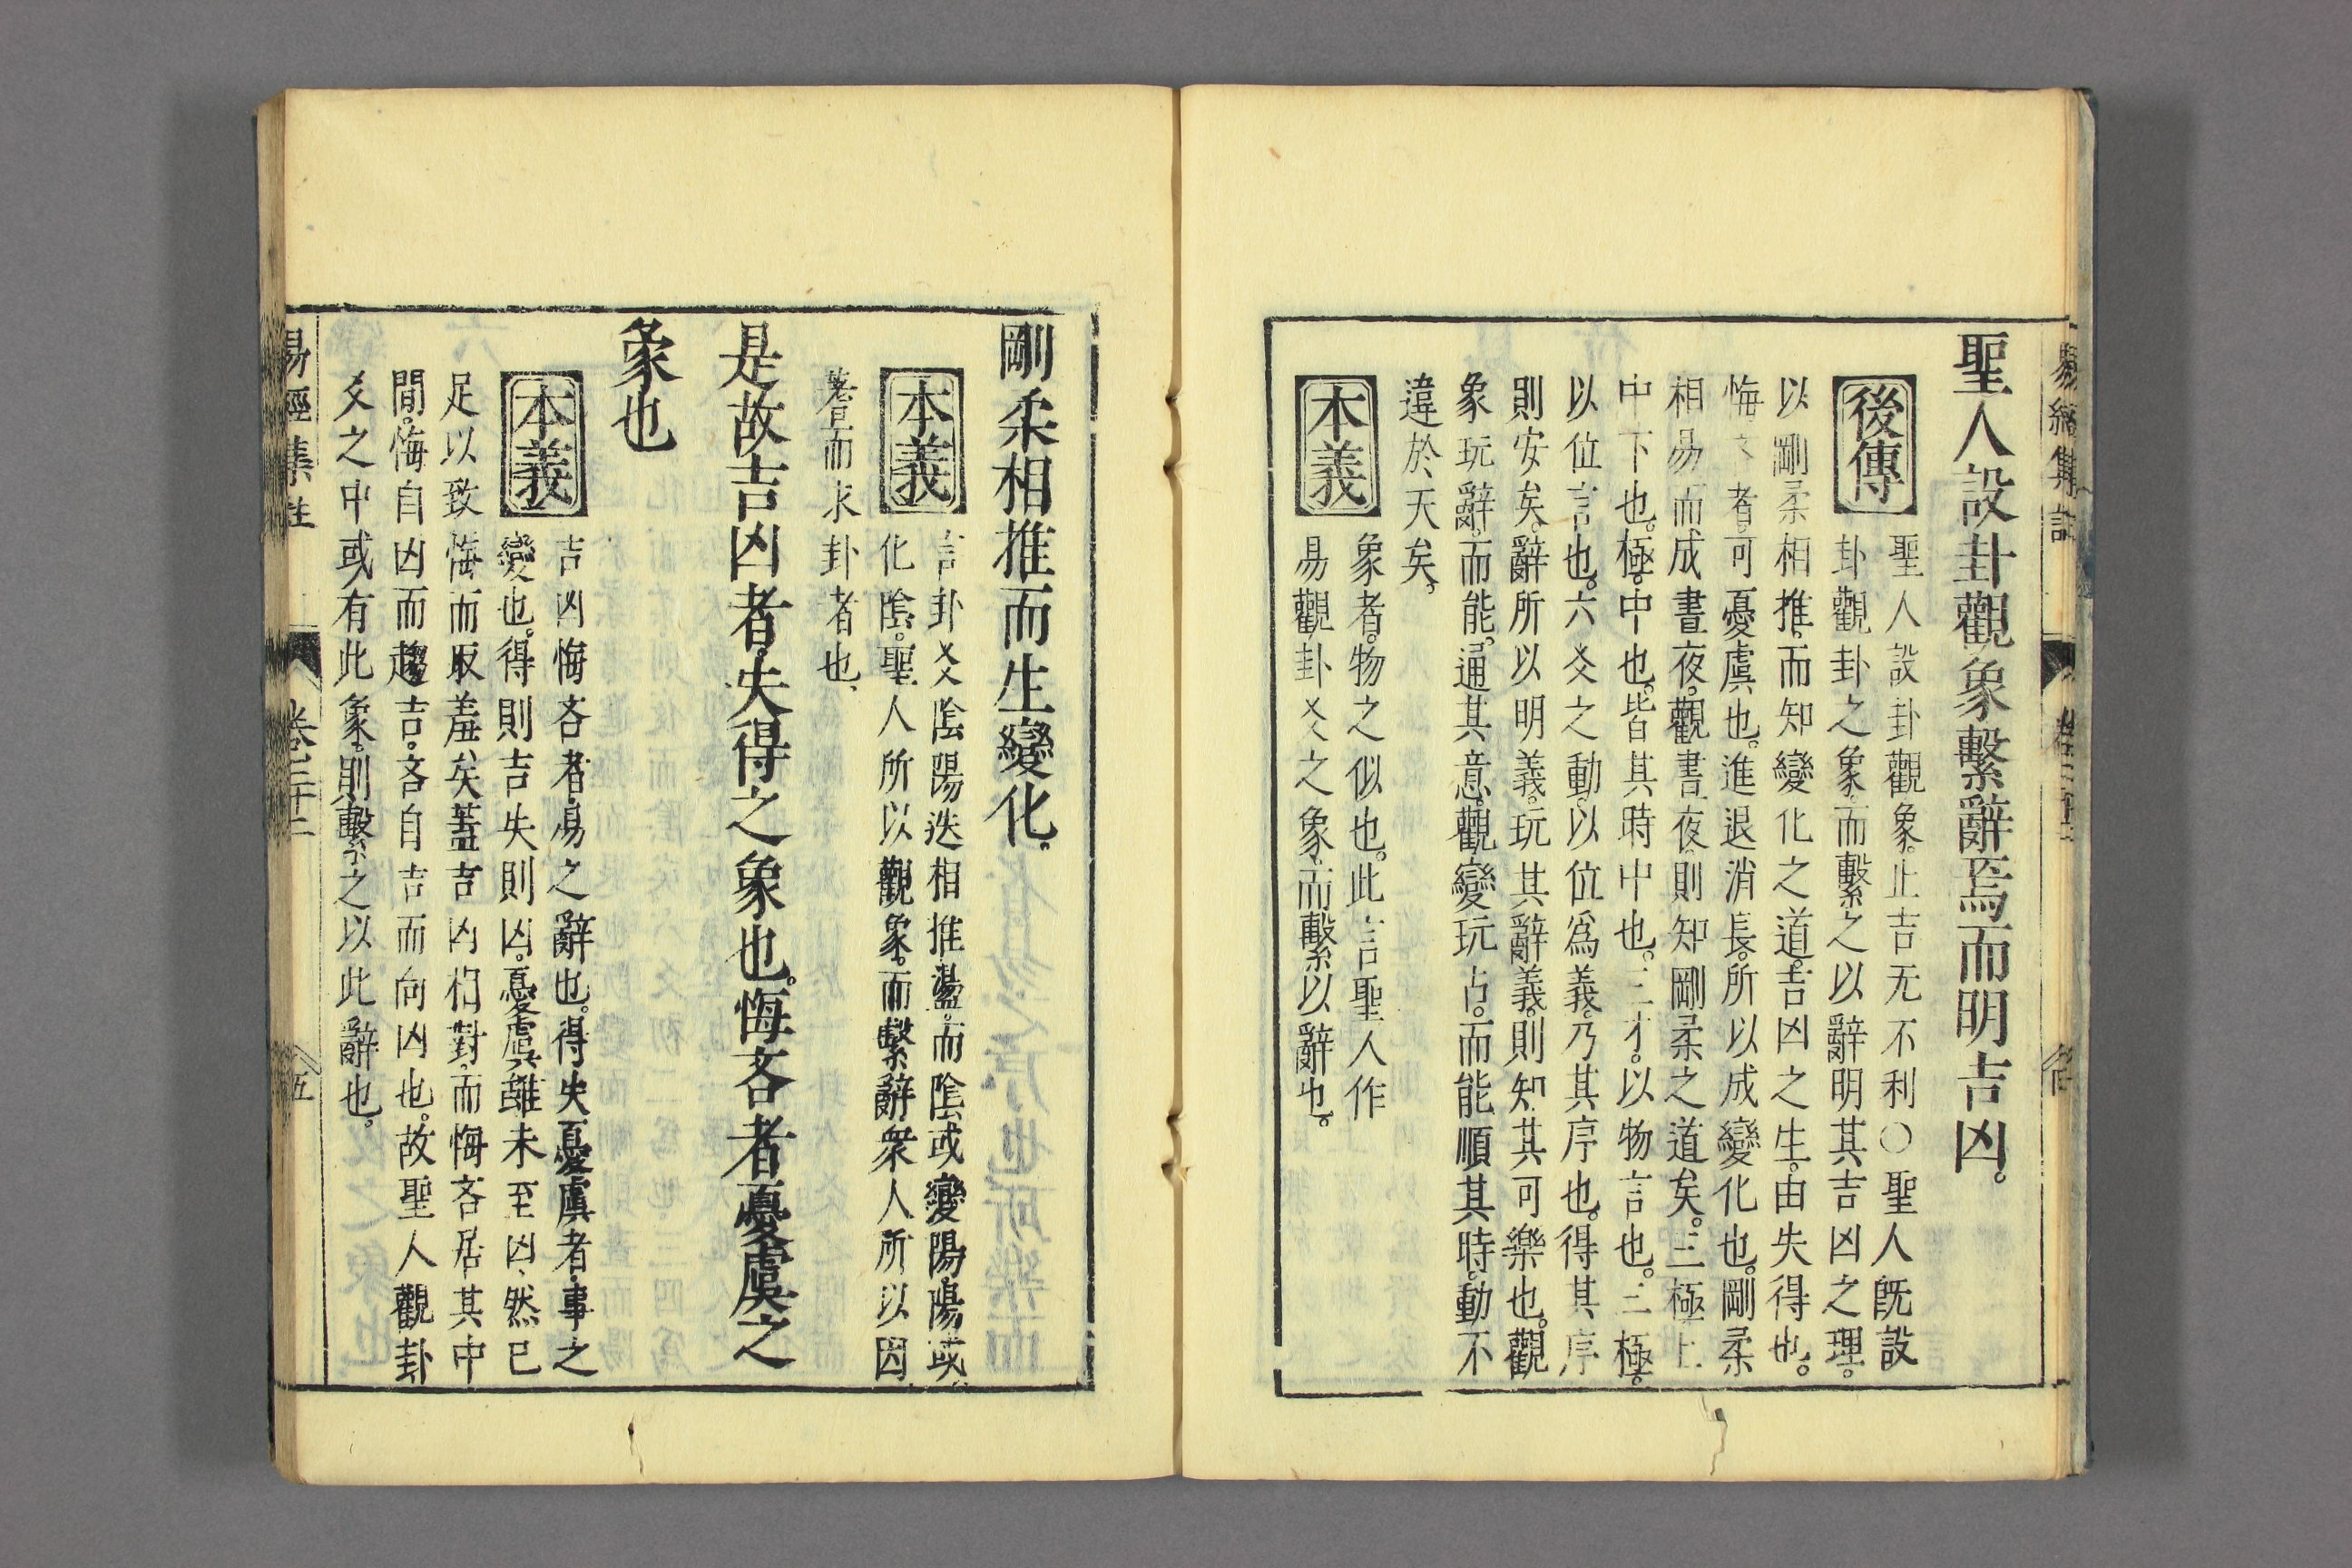 聖人設卦觀象繫辭焉而明吉凶。
後傳
聖人設卦觀象。止吉无不利〇聖人既設
卦觀卦之象。而繫之以辭明其吉凶之理。
以剛柔相推。而知變化之道。吉凶之生。由失得也。
悔 者可憂虞也。進退消長。所以成變化也。剛柔
相易而成晝夜。觀晝夜。則知剛柔之道矣。三極上
中下也。極。中也。皆其時中也。三才。以物言也。三極。
以位言也。六爻之動。以位爲義。乃其序也。得其序
則安矣。辭所以明義。玩其辭義。則知其可樂也。觀
象玩辭。而能通其意。觀變玩占。而能順其時。動不
違於天矣。
本義
象者。物之似也。此言聖人作
易觀卦爻之象。而繫以辭也。
剛柔相推而生變化。
本義
言卦爻陰陽迭相推盪。而陰或變陽陽或。
化陰。聖人所以觀象。而繫辭。衆人所以因
蓍而求卦者也、
是故吉凶者。失得之象也。悔吝者憂虞之
象也
本義
吉凶悔吝者。易之辭也。得失憂虞者。事之
變也。得則吉失則凶。憂虞雖未至凶、然已
足以致悔而取羞矣蓋吉凶相對。而悔吝居其中
間。悔自凶而趨吉。吝自吉而向凶也。故聖人觀卦
爻之中或有此象。則繫之以此辭也。
易經集註
卷之二十二
五